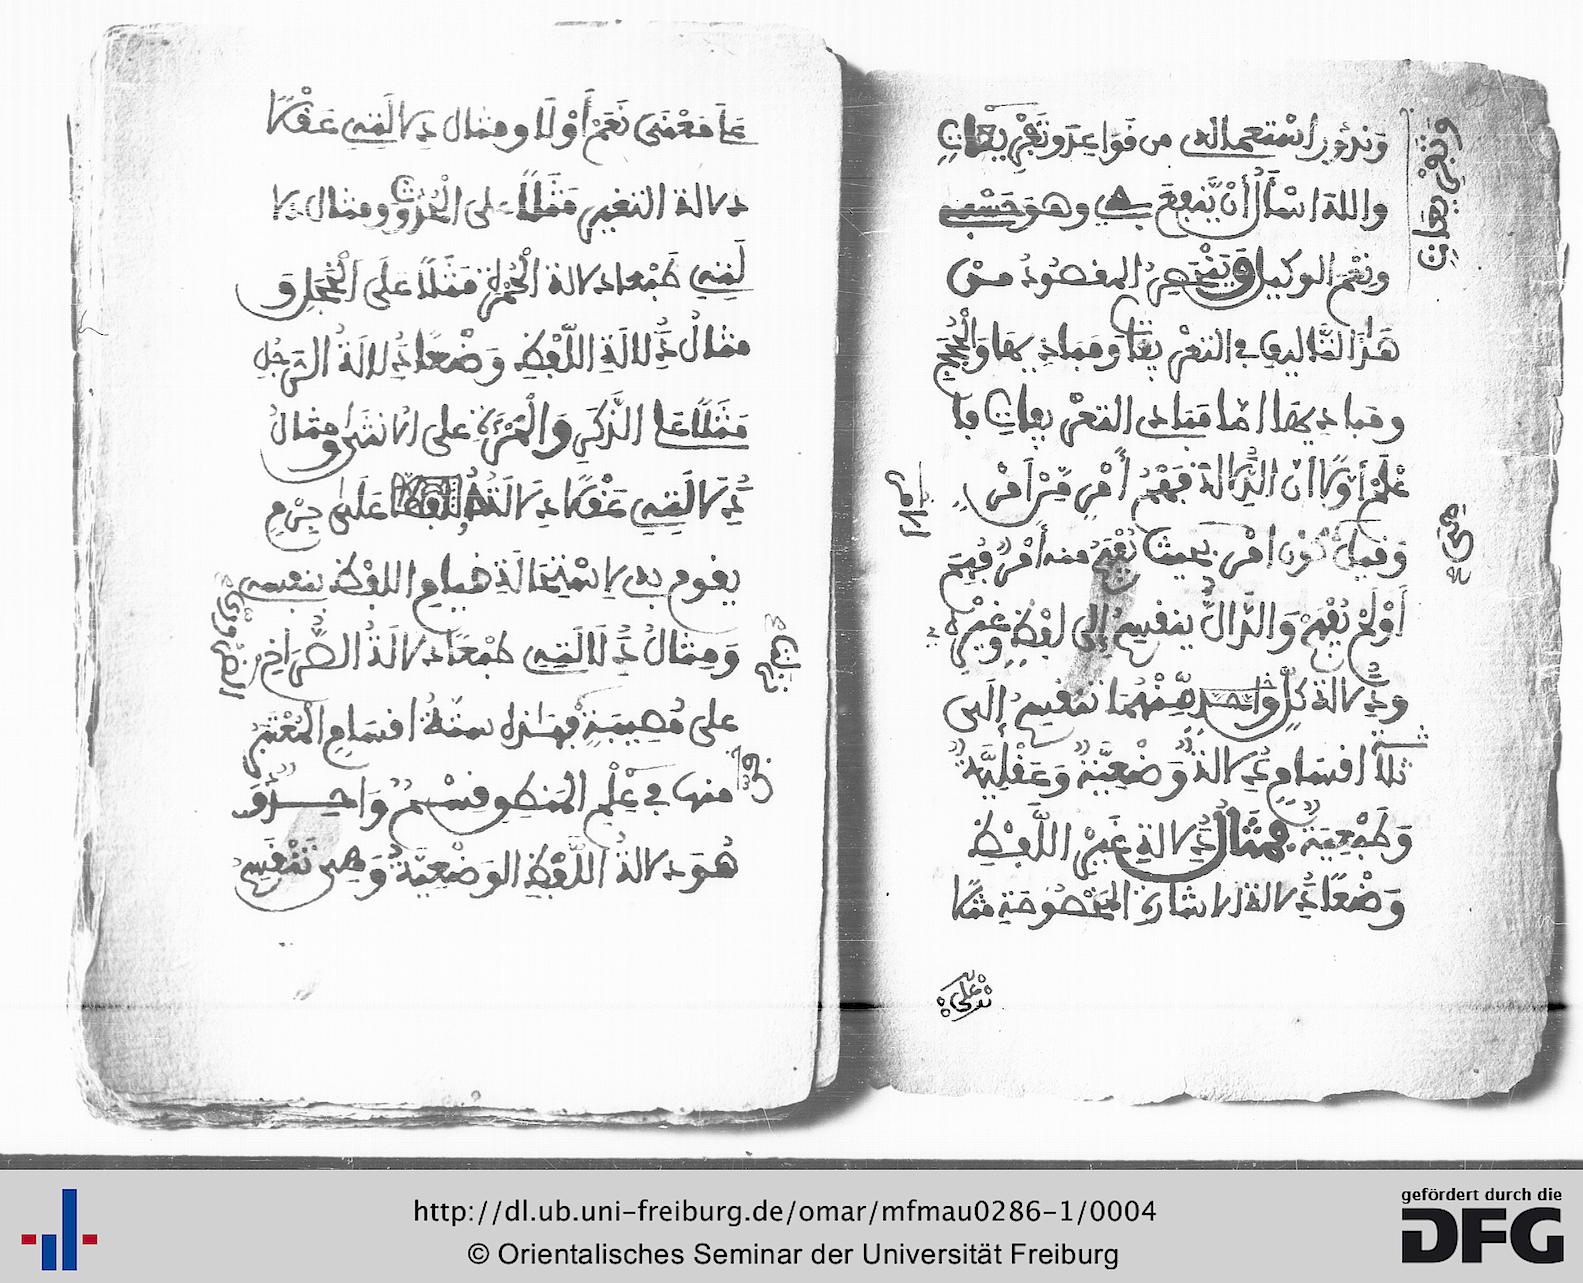 وندور استعماله من قواعد وتعريفات
والله اسأل أن ينفع به وهو حسبي
ونعم الوكيل وينحصر المقصود من
هذا التاليف في التعريفات ومباديها والحجج
ومباديها اما مبادي التعريفات فا
علم أولا ان الدلالة فهم أمر من أمر
وقيل كون امر بحيث يفهم منه أمر فهم
أو لم يفهم والدال ينقسم إلى لفظ وغيره
ودلالة كل واحد منهما تنقسم إلى
ثلاثة اقسام دلالة وضعية وعقلية
وطبعية فمثال دلالة غير اللفظ
وضعا دلالة الاشارة المخصوصة مثلا
على معنى نعم أو لا ومثال دلالته عقلا
دلالة التغير مثلا على الحدوث ومثال دلا
لته طبعا دلالة الحمرة مثلا على الخجل و
مثال دلالة اللفظ وضعا دلالة الرجل
مثلا على الذكر والمرأة على الانثى ومثال
دلالته عقلا دلالة اللفظ على جرم
يقوم به لاستحالة قيام اللفظ بنفسه
ومثال دلالته طبعا دلالة الصراخ
على مصيبة فهذه ستة اقسام المعتبر
منها في علم المنطق قسم واحد و
هو دلالة اللفظ الوضعية وهي تنقسم
وتعريفات
على
http://dl.ub.uni-freiburg.de/omar/mfmau0286-1/0004
© Orientalisches Seminar der Universität Freiburg
gefördert durch die
DFG